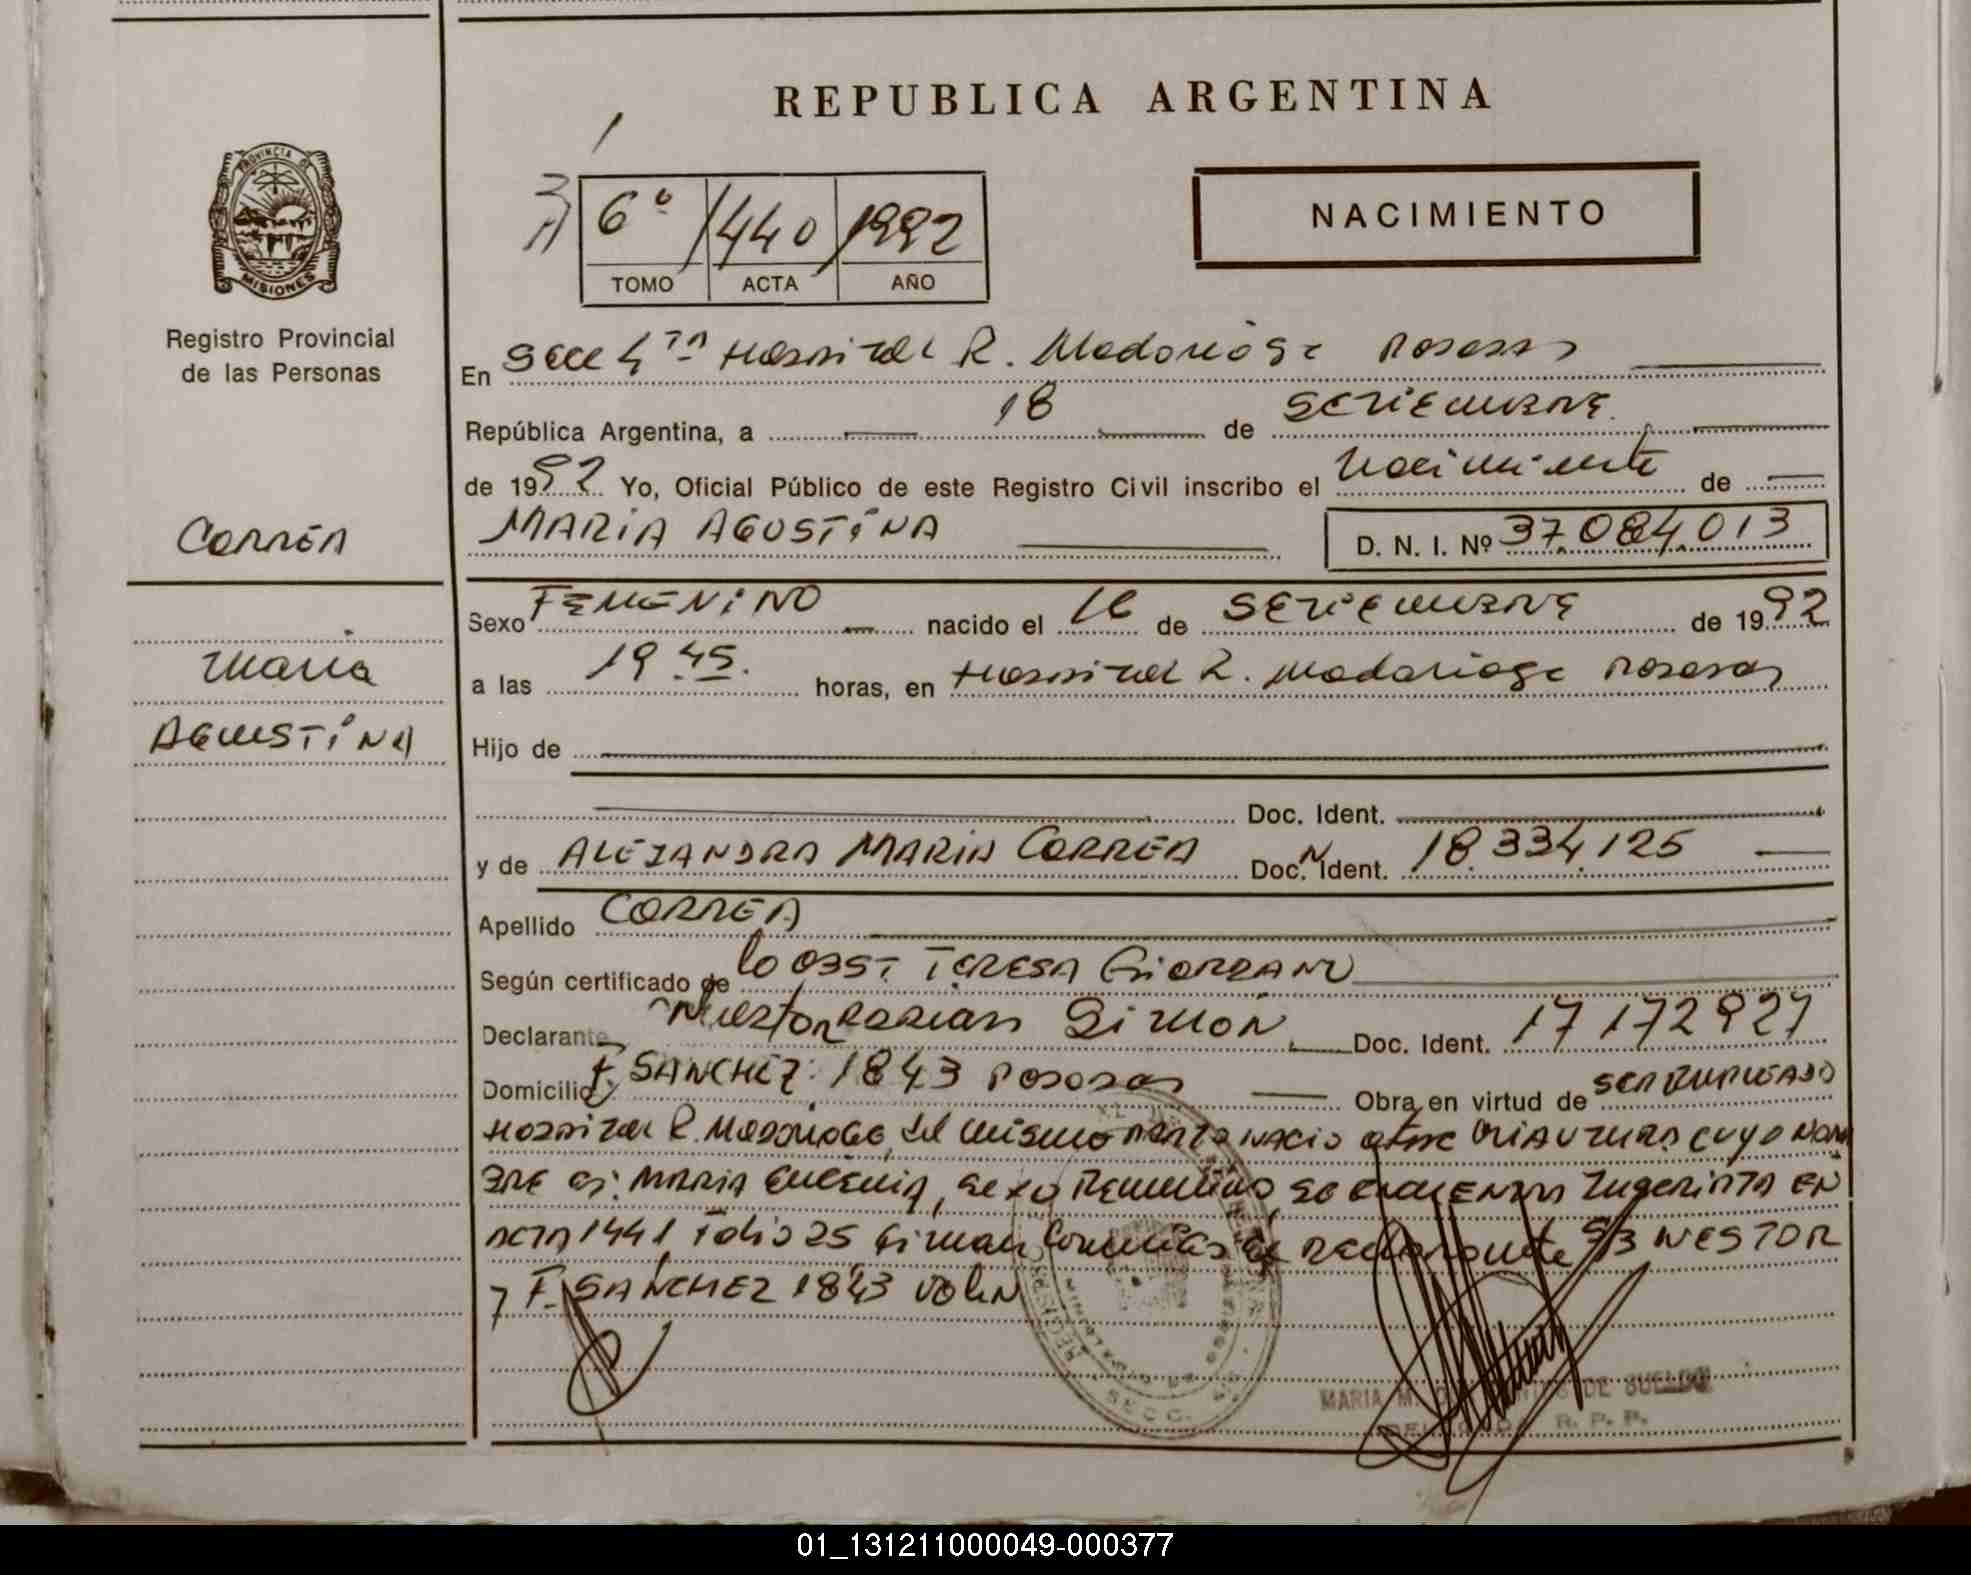 REPUBLICA ARGENTINA
PROVINCIA DE
MISIONES
Registro Provincial
de las Personas
6º 1440 1992
TOMO ACTA AÑO
NACIMIENTO
En Secc 4ta Hospital R. Madariaga Posadas
República Argentina, a 18 de SETIEMBRE
de 1992 Yo, Oficial Público de este Registro Civil inscribo el Nacimiento de
MARIA AGUSTINA D. N. I. Nº 37.084.013
CORREA
Sexo FEMENINO nacido el 16 de SETIEMBRE de 1992
Maria
a las 19.45. horas, en Hospital R. Madariaga Posadas
AGUSTINA
Hijo de
Doc. Ident.
y de ALEJANDRA MARIA CORREA Doc. Ident. 18.334.125
Apellido CORREA
Según certificado de la OBST TERESA GIORDANO
Declarante Nestor Simón Doc. Ident. 17 172 927
Domicilio F. SANCHEZ 1843 Posadas Obra en virtud de SER EMPLEADO
Hospital R. Madariaga del mismo PARTO NACIO otra CRIATURA CUYO NOM
BRE es: MARIA EUGENIA, sexo Femenino, SE ENCUENTRA Inscripta EN
ACTA 1441 Folio 25 Firman declarante S/B NESTOR
7 F. SANCHEZ 1843 Vale
MARIA M. DE SUELDO
R. P. P.
SECC. 4
01_131211000049-000377